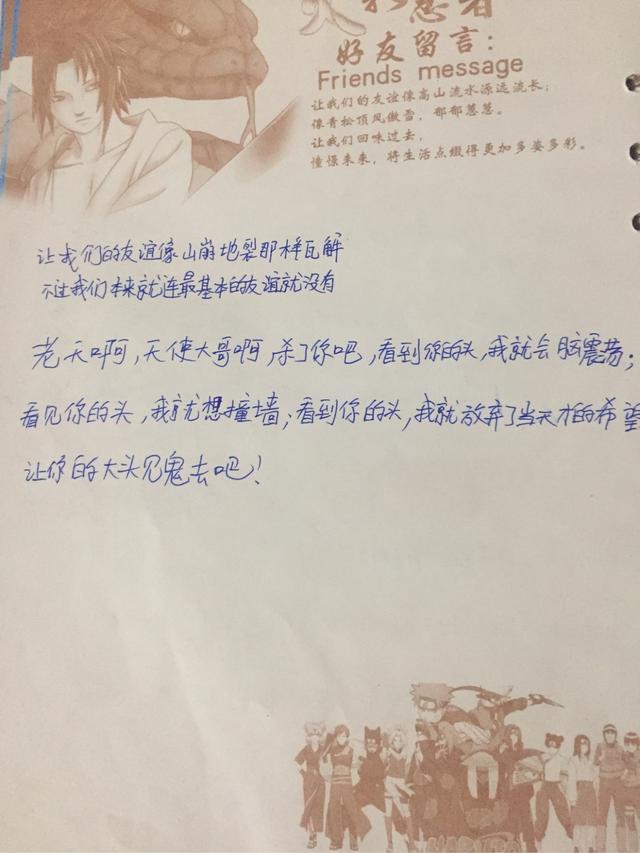 火影忍者
好友留言：
Friends message
让我们的友谊像高山流水源远流长；
像青松顶风傲雪，郁郁葱葱。
让我们回味过去，
憧憬未来，将生活点缀得更加多姿多彩。
让我们的友谊像山崩地裂那样瓦解
不过我们本来就连最基本的友谊就没有
老天啊，天使大哥啊，杀了你吧，看到你的头，我就会脑震荡；
看见你的头，我就想撞墙；看到你的头，我就放弃了当天才的希望
让你的大头见鬼去吧！